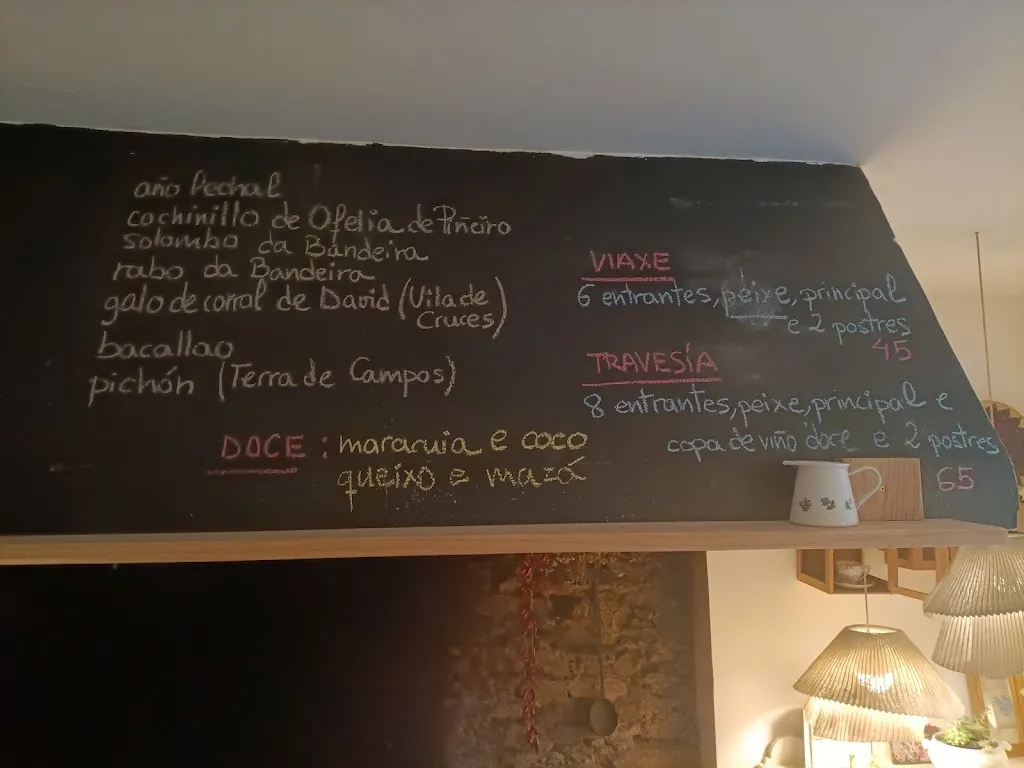 año lechal
cochinillo de Ofelia de Piñeiro
solombo da Bandeira
rabo da Bandeira
galo de corral de David (Vila de
Cruces)
bacallao
pichón (Terra de Campos)
DOCE: maracuia e coco
queixo e mazá
VIAXE
6 entrantes, peixe, principal
e 2 postres
45
TRAVESÍA
8 entrantes, peixe, principal e
copa de viño doce e 2 postres
65